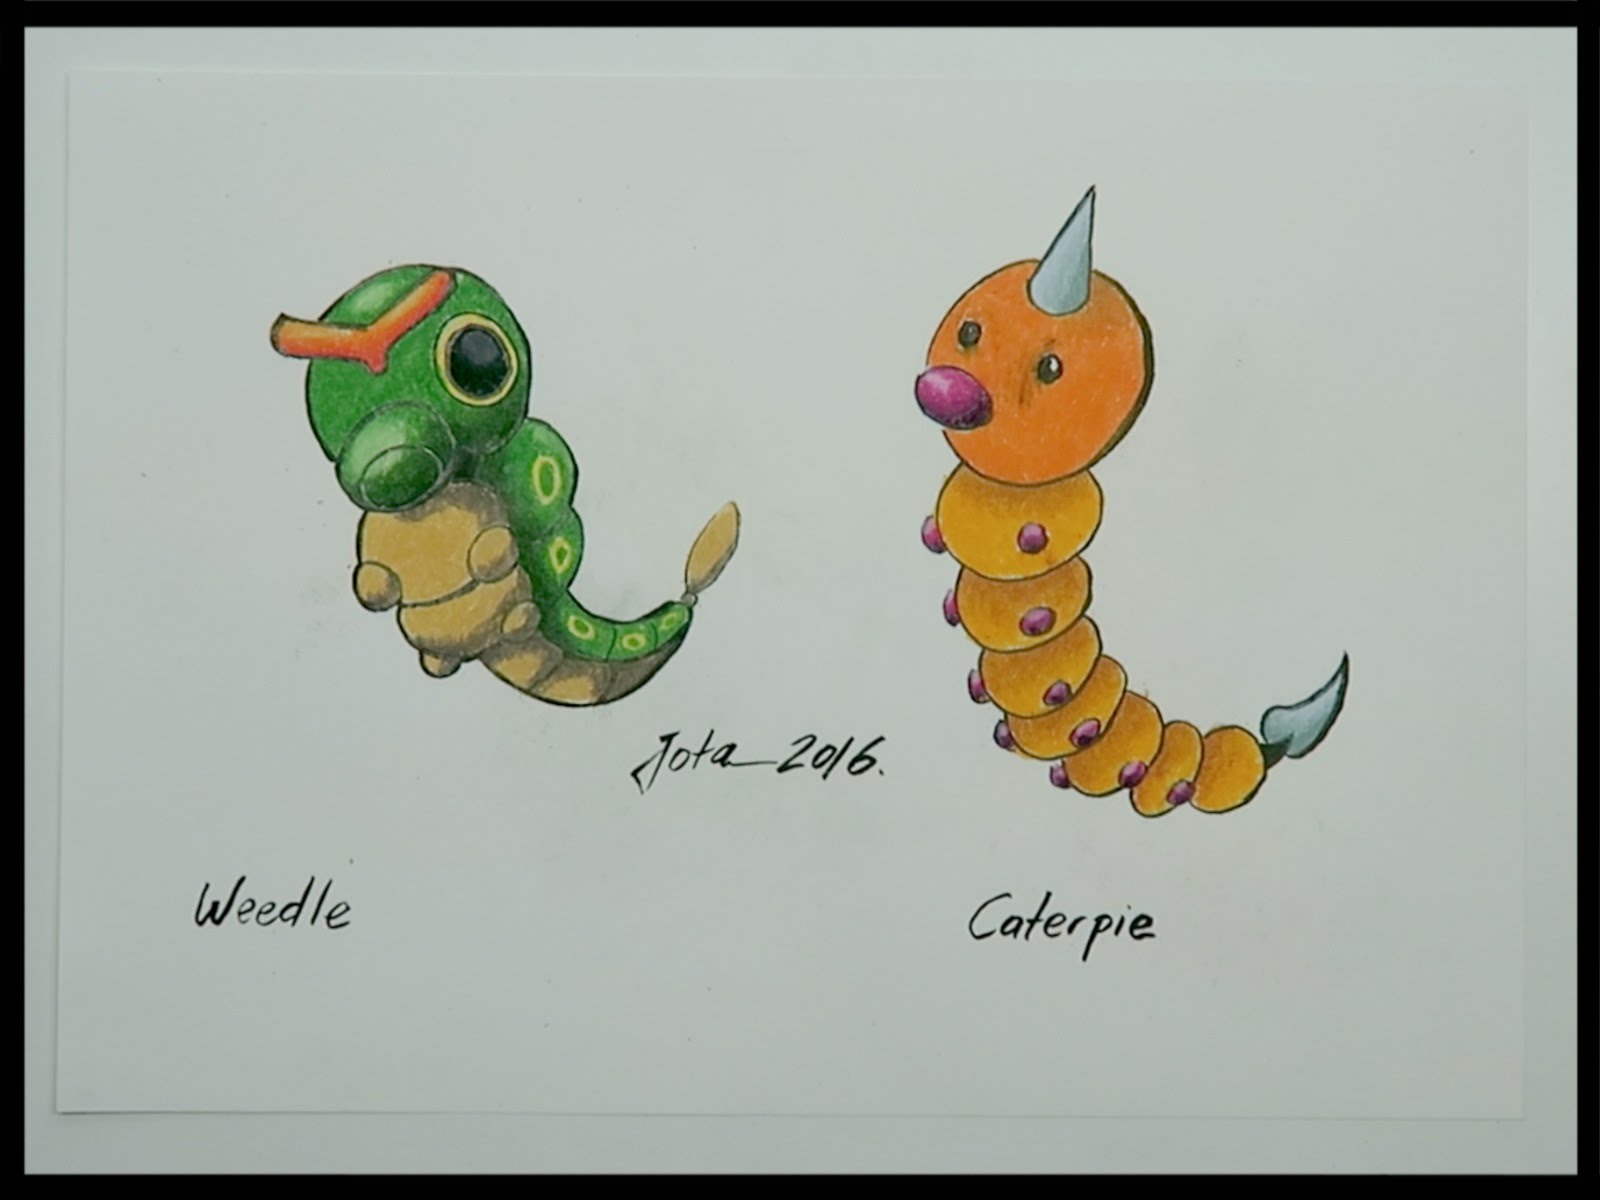 Jota 2016.
Weedle
Caterpie